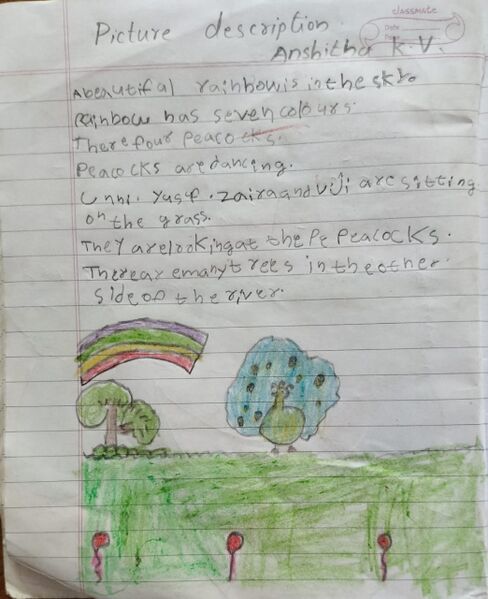 classmate
Date
Picture description
Anshitha K.V.
A beautiful rainbow is in the sky.
Rainbow has seven colours.
There four peacocks.
Peacocks are dancing.
Unni. Yusf. Zaira and Viji are sitting
on the grass.
They are looking at the Pe Peacocks.
There are many trees in the other
side of the river.